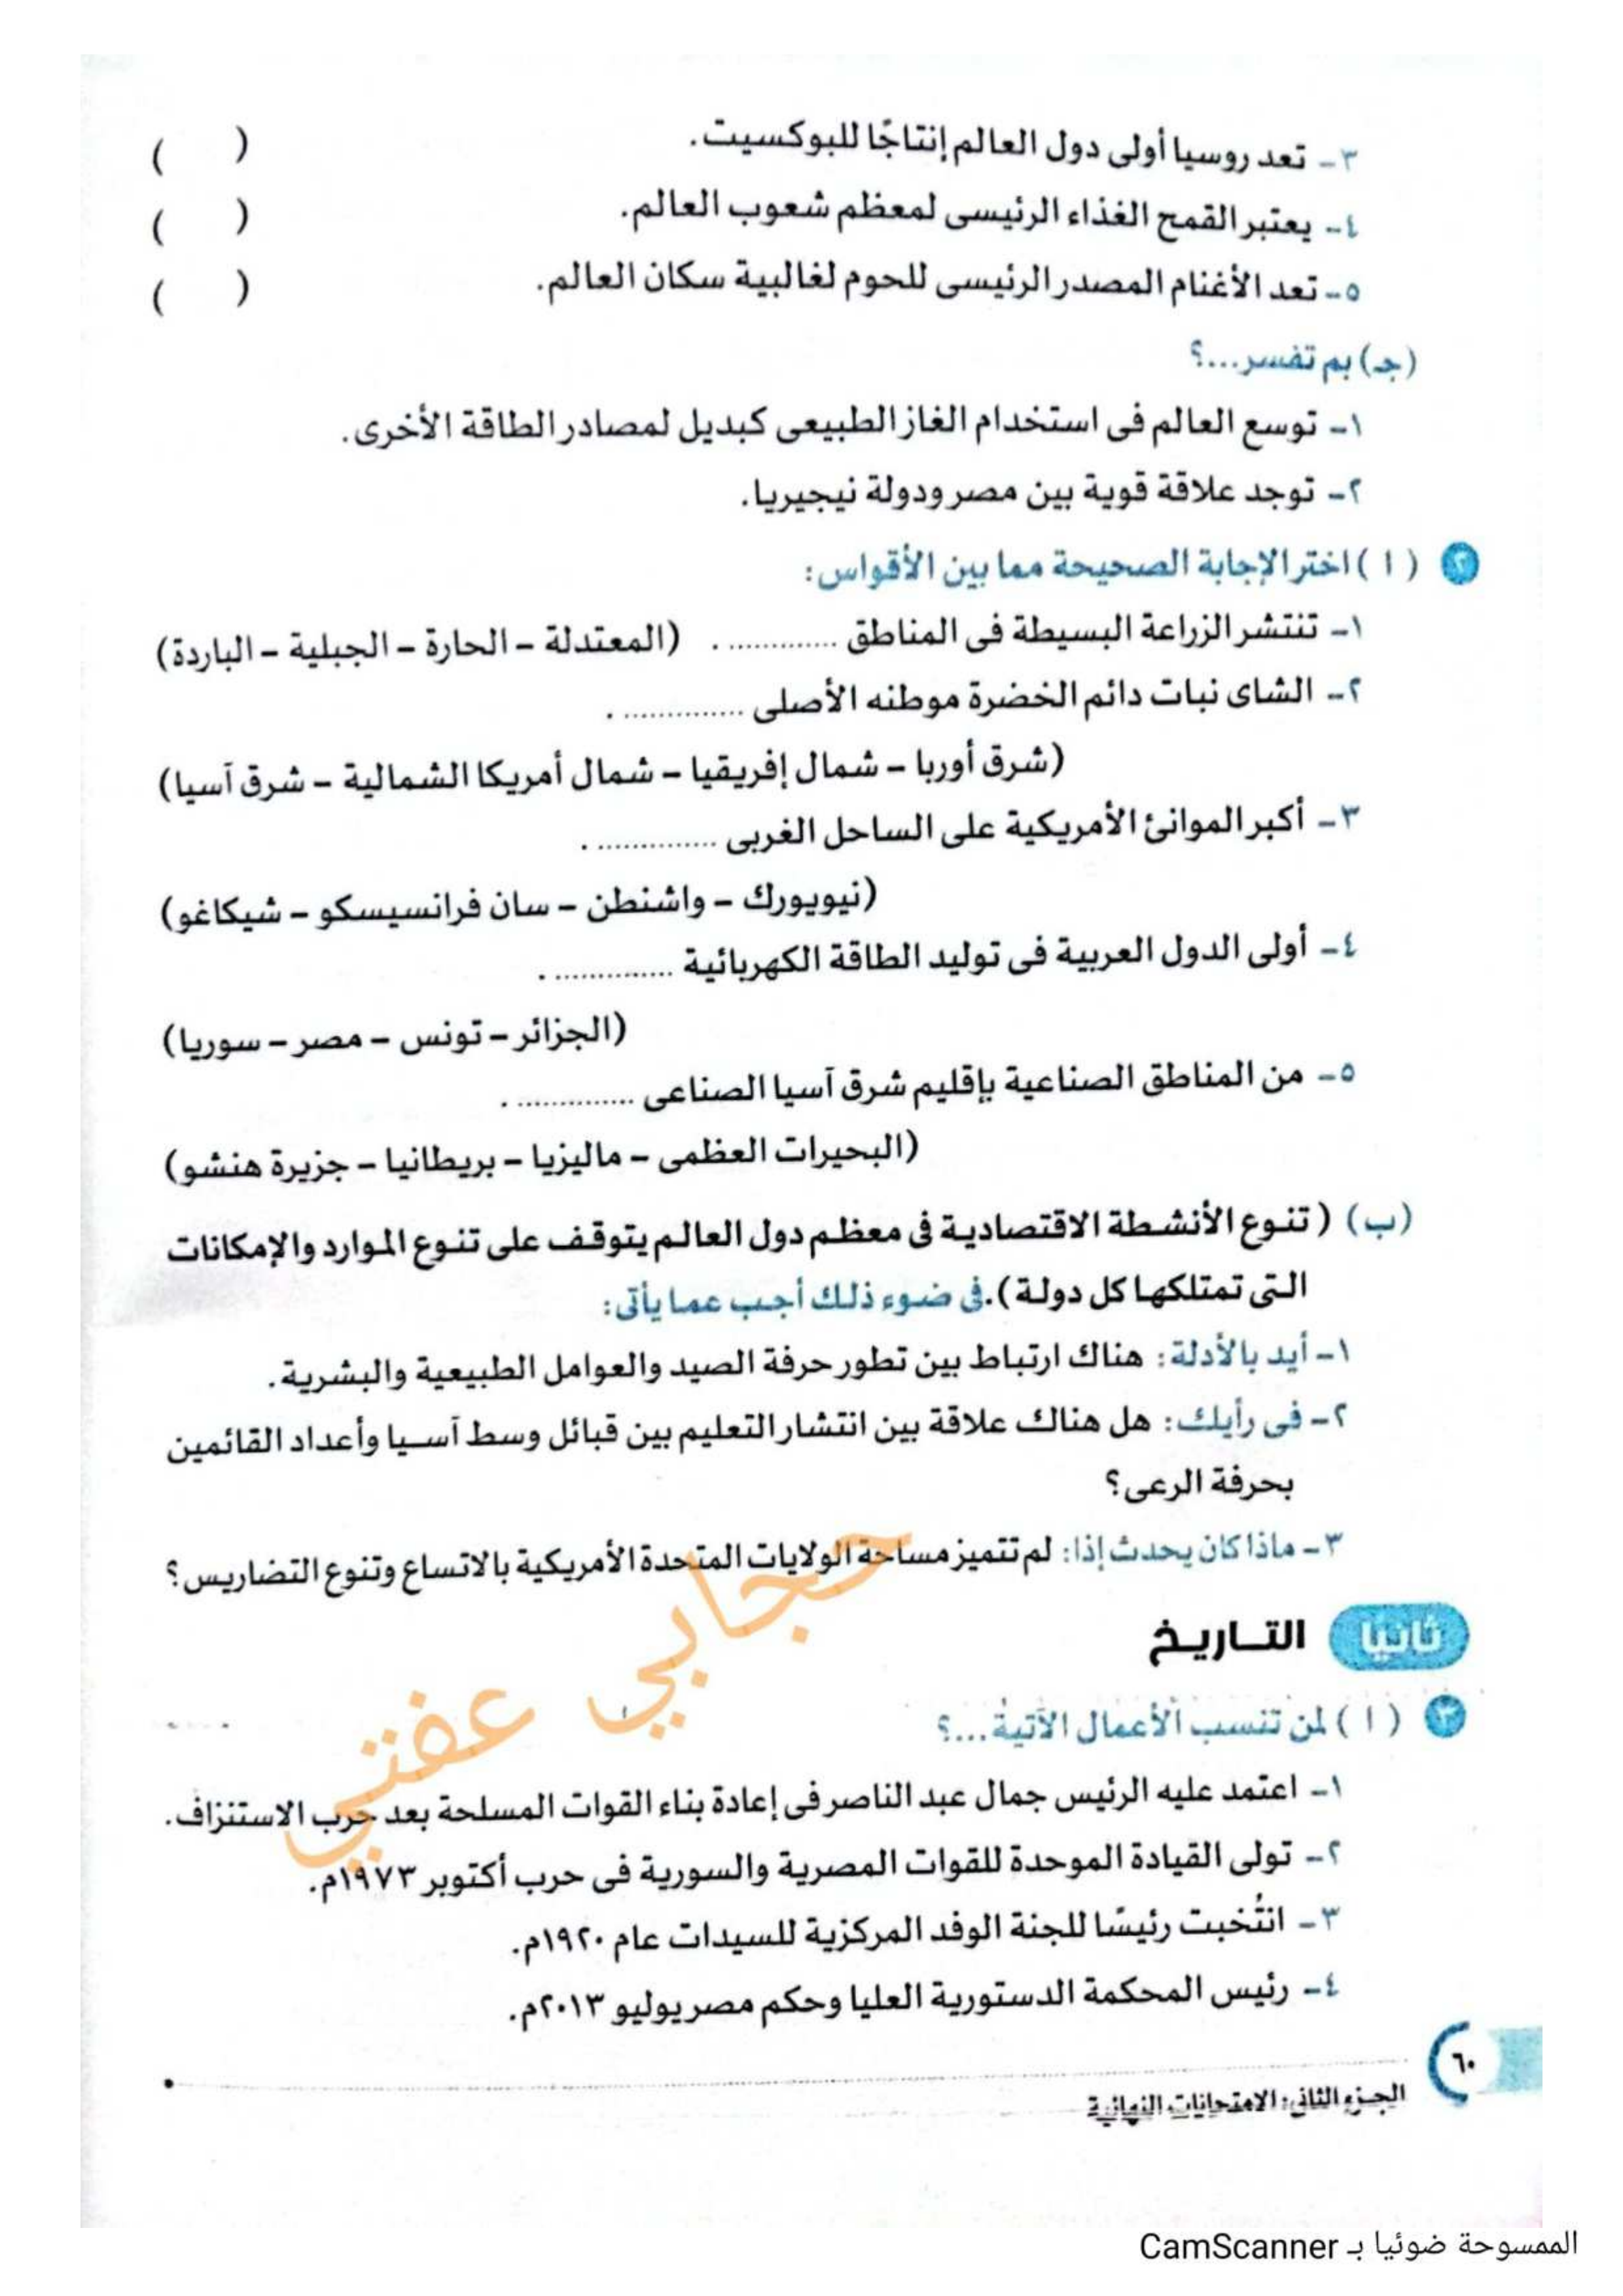 ٣- تعد روسيا أولى دول العالم إنتاجًا للبوكسيت. ( )
٤- يعتبر القمح الغذاء الرئيسى لمعظم شعوب العالم. ( )
٥- تعد الأغنام المصدر الرئيسى للحوم لغالبية سكان العالم. ( )
(جـ) بم تفسر...؟
١- توسع العالم فى استخدام الغاز الطبيعى كبديل لمصادر الطاقة الأخرى.
٢- توجد علاقة قوية بين مصر ودولة نيجيريا.
٢ ( ا ) اختر الإجابة الصحيحة مما بين الأقواس:
١- تنتشر الزراعة البسيطة فى المناطق ............. . (المعتدلة - الحارة - الجبلية - الباردة)
٢- الشاى نبات دائم الخضرة موطنه الأصلى .............. .
(شرق أوربا - شمال إفريقيا - شمال أمريكا الشمالية - شرق آسيا)
٣- أكبر الموانئ الأمريكية على الساحل الغربى .............. .
(نيويورك - واشنطن - سان فرانسيسكو - شيكاغو)
٤- أولى الدول العربية فى توليد الطاقة الكهربائية .............. .
(الجزائر - تونس - مصر - سوريا)
٥- من المناطق الصناعية بإقليم شرق آسيا الصناعى .............. .
(البحيرات العظمى - ماليزيا - بريطانيا - جزيرة هنشو)
(ب) ( تنوع الأنشطة الاقتصادية فى معظم دول العالم يتوقف على تنوع الموارد والإمكانات
التى تمتلكها كل دولة ). فى ضوء ذلك أجب عما يأتى:
١- أيد بالأدلة: هناك ارتباط بين تطور حرفة الصيد والعوامل الطبيعية والبشرية.
٢- فى رأيك: هل هناك علاقة بين انتشار التعليم بين قبائل وسط آسيا وأعداد القائمين
بحرفة الرعى؟
٣- ماذا كان يحدث إذا: لم تتميز مساحة الولايات المتحدة الأمريكية بالاتساع وتنوع التضاريس؟
حجابي عفتي
ثانيًا التـاريـخ
٣ ( ا ) لمن تنسب الأعمال الآتية...؟
١- اعتمد عليه الرئيس جمال عبد الناصر فى إعادة بناء القوات المسلحة بعد حرب الاستنزاف.
٢- تولى القيادة الموحدة للقوات المصرية والسورية فى حرب أكتوبر ١٩٧٣م.
٣- انتُخبت رئيسًا للجنة الوفد المركزية للسيدات عام ١٩٢٠م.
٤- رئيس المحكمة الدستورية العليا وحكم مصر يوليو ٢٠١٣م.
٦٠
الجـزء الثانى: الامتحانات النهائية
الممسوحة ضوئيا بـ CamScanner